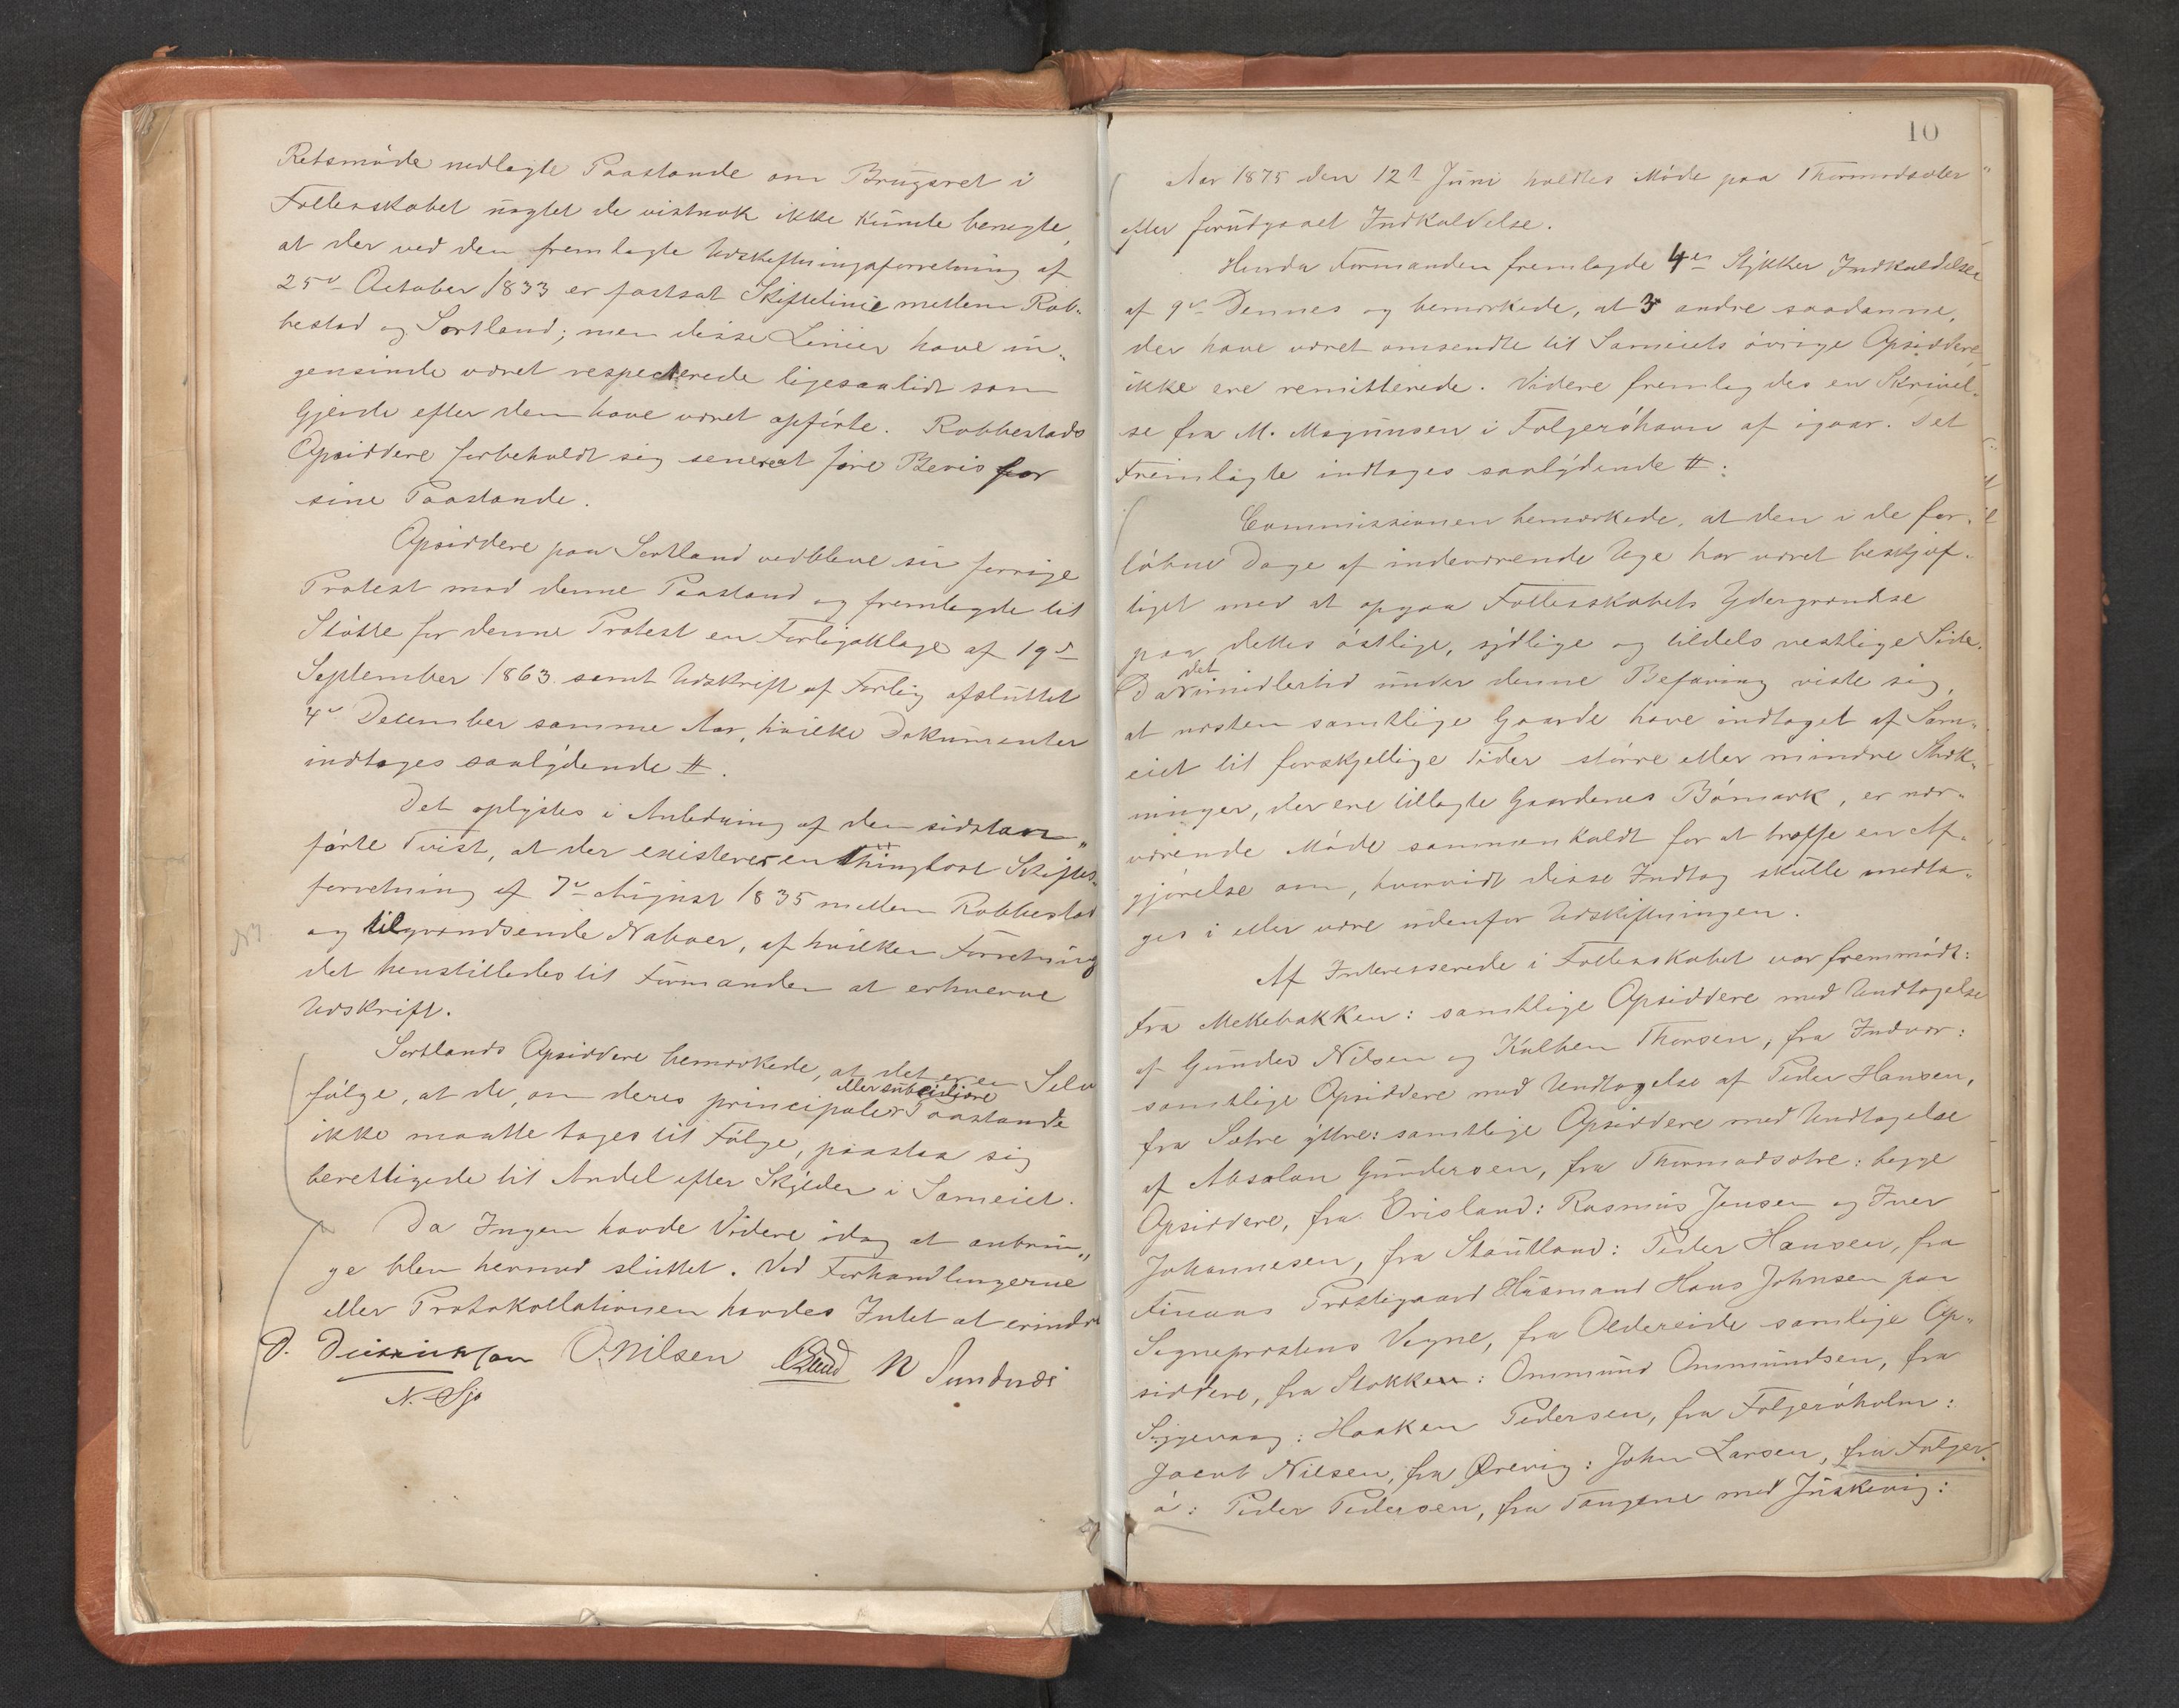 Retsmøde nedlagte Paastande om Brugsret i
Fællesskabet uagtet de vistnok ikke kunde benegte,
at der ved den fremlagte Udskiftningsforretning af
25de October 1833 er fastsat Skiftelinie mellem Rob-
bestad og Sortland; men disse Linier have in„
gensinde været respecterede ligesaalidt som
Gjerde efter dem have været opførte. Robbestads
Opsiddere forbeholdt sig senere at føre Bevis for
sine Paastande.
Opsiddere paa Sortland vedbleve sin forrige
Protest mod denne Paastand og fremlagde til
Støtte for denne Protest en Forligsklage af 19de
September 1863 samt Udskrift af Forlig afsluttet
4de December samme Aar, hvilke Dokumenter
indtages saalydende #.
Det oplystes i Anledning af den sidstan„
førte Tvist, at der existerer en thinglæst Skiftes-
forretning af 7de August 1835 mellem Robbestad
og tilgrændsende Naboer, af hvilken Forretning
det henstilledes til Formanden at erhverve
Udskrift.
Sortlands Opsiddere bemærkede, at det er en Selv
følge, at de, om deres principale eller subsidiære Paastande
ikke maatte tages til Følge, paastaa sig
berettigede til Andel efter Skylden i Sameiet.
Da Ingen havde Videre idag at anbrin„
ge blev hermed sluttet. Ved Forhandlingerne
eller Protokollationen havdes Intet at erindre
D. Didriksen O. Nilsen N Sundnæs
N. Sjo
10
Aar 1875 den 12te Juni holdtes Møde paa Thormodsæter„
efter forudgaaet Indkaldelse.
Herda Formanden fremlagde 4re Stykker Indkaldelse
af 9de Dennes og bemærkede, at 3 andre saadanne,
der have været omsendte til Sameiets øvrige Opsiddere,
ikke ere remitterede. Videre fremlagdes en Skrivel-
se fra M. Magnusen i Folgerøhavn af igaar. Det
Fremlagte indtages saalydende #:
Commissionen bemærkede, at den i de for-
løbne Dage af indeværende Uge har været beskjæf-
tiget med at opgaa Fællesskabets Ydergrændse
paa dettes østlige, sydlige og tildels vestlige Side.
Da det imidlertid under denne Befaring viste sig,
at næsten samtlige Gaarde have indtaget af Sam-
eiet til forskjellige Tider større eller mindre Stræk-
ninger, der ere tillagte Gaardenes Bømark, er nær-
værende Møde sammenkaldt for at træffe en Af-
gjørelse om, hvorvidt disse Indtag skulle medta-
ges i eller være udenfor Udskiftningen.
Af Interesserede i Fællesskabet var fremmødt:
fra Mekebakken: samtlige Opsiddere med Undtagelse
af Gunder Nilsen og Kolben Thorsen, fra Indvær:
samtlige Opsiddere med Undtagelse af Peder Hansen,
fra Sætre yttre: samtlige Opsiddere med Undtagelse
af Absalon Gundersen, fra Thormodsætre: begge
Opsiddere, fra Erisland: Rasmus Jensen og Iver
Johannesen, fra Stautland: Peder Hansen, fra
Finaas Præstegaard Husmand Hans Johnsen paa
Sognepræstens Vegne, fra Olderside samlige Op-
siddere, fra Stokken: Ommund Ommundsen, fra
Siggevaag: Haaken Pedersen, fra Folgerøholm:
Jacob Nilsen, fra Ørevig: John Larsen, fra Folger-
ø: Peder Pedersen, fra Tangene med Juskevig: